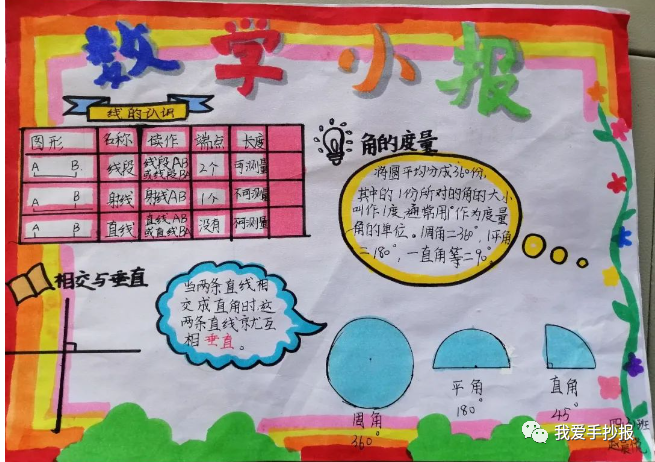 数学小报
线的认识
图形 名称 读作 端点 长度
A B 线段 线段AB 2个 可测量
或线段BA
A B 射线 射线AB 1个 不可测量
A B 直线 直线AB 没有 不可测量
或直线BA
角的度量
将圆平均分成360份,
其中的1份所对的角的大小
叫作1度,通常用°作为度量
角的单位。1周角=360°,1平角
=180°,一直角等=90°。
相交与垂直
当两条直线相
交成直角时,这
两条直线就互
相垂直。
周角
360°
平角
180°
直角
45°
我爱手抄报